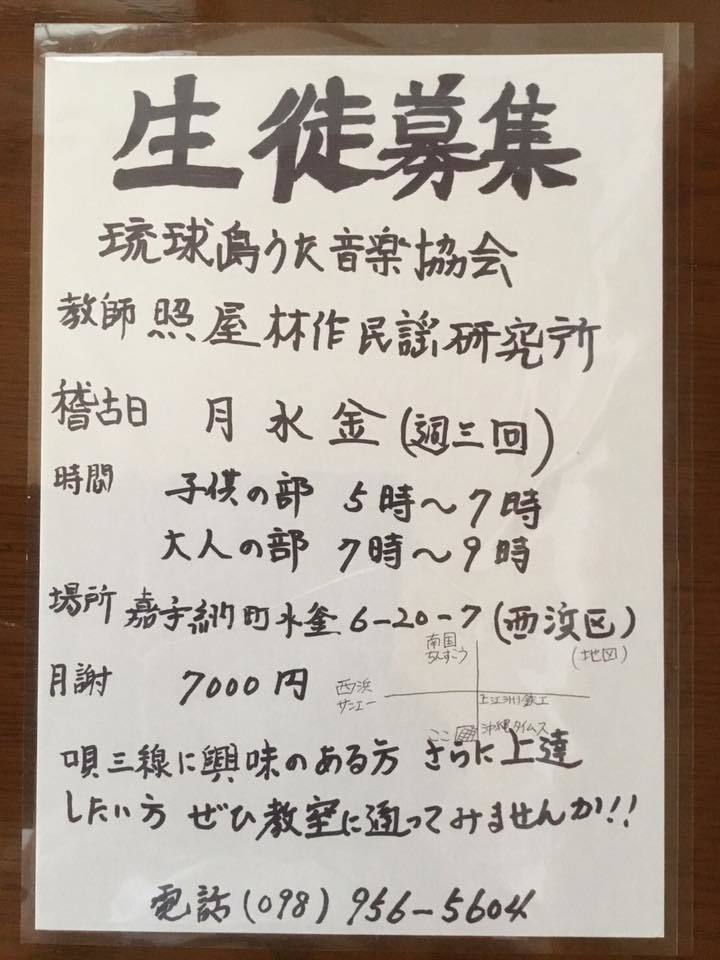 生徒募集
琉球島うた音楽協会
教師 照屋林作民謡研究所
稽古日 月水金(週三回)
時間 子供の部 5時～7時
大人の部 7時～9時
場所 嘉手納町水釜6-20-7(西浜区)
(地図)
南国
ちんすこう
西浜
サンエー
上江洲鉄工
ここ
沖縄タイムス
月謝 7000円
唄三線に興味のある方 さらに上達
したい方 ぜひ教室に通ってみませんか!!
電話(098)956-5604